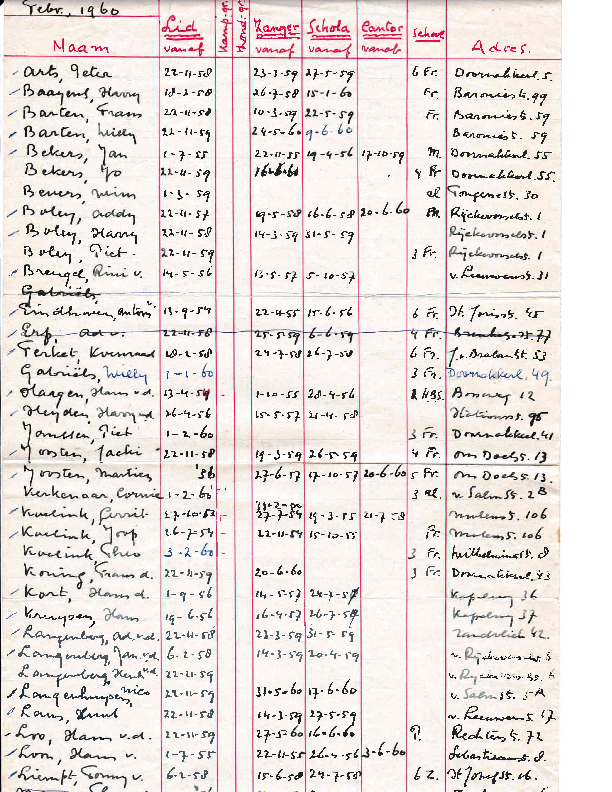 Febr., 1960
Naam Lid vanaf Kamp.gr. Rond.gr. Zanger vanaf Schola vanaf Cantor vanaf School Adres.
Arts, Peter 22-11-58 23-3-59 27-5-59 6 Fr. Doornakkerl. 5.
Baayens, Harry 18-2-58 26-7-58 15-1-60 Fr. Baroniestr. 99
Barten, Frans 22-11-58 10-3-59 22-5-59 Fr. Baroniestr. 59
Barten, Willy 22-11-59 24-5-60 9-6-60 Baroniestr. 59
Bekers, Jan 1-7-55 22-11-55 19-4-56 17-10-59 M. Doornakkerl. 55
Bekers, Jo 22-11-59 16-6-60 4 Fr. Doornakkerl. 55.
Bevers, Wim 1-3-59 al 30
Boley, Addy 22-11-57 19-5-58 16-6-58 20-6-60 M. Rijckevorselstr. 1
Boley, Harry 22-11-58 14-3-59 31-5-59 Rijckevorselstr. 1
Boley, Piet. 22-11-59 3 Fr. Rijckevorselstr. 1
Breugel, Rini v. 14-5-56 13-5-57 5-10-57 v. Leeuwenstr. 31
Gabriëls,
Eindhoven, Anton v 13-9-54 22-11-55 15-6-56 6 Fr. St. Jorisstr. 45
Erp, Ad v. 22-11-58 25-5-59 6-6-59 4 Fr. 77
Ferket, Koenraad 18-2-58 24-7-58 26-7-58 6 Fr. J. v. Brabantstr. 53
Gabriëls, Willy 1-1-60 3 Fr. Doornakkerl. 49.
Haagen, Hans v.d. 13-4-54 1-10-55 28-4-56 2 HBS. Bosweg 12
Heyden, Harry v.d. 26-4-56 15-5-57 21-4-58 Stationsstr. 95
Janssen, Piet 1-2-60 3 Fr. Doornakkerl. 41
Joosten, Jackie 22-11-58 19-3-59 26-5-59 4 Fr. 13
Joosten, Martien '56 27-6-57 17-10-57 20-6-60 5 Fr. 13.
Kerkenaar, Corrie 1-2-60 - 3 al. v. Salmstr. 2B
Koelink, Gerrit 27-10-53 - 27-7-54 19-3-55 21-7-58 106
Koelink, Joop 26-7-54 - 22-11-54 15-10-55 Fr. 106
Koelink Theo 3-2-60 - 3 Fr. Wilhelminastr. 8
Koning, Frans d. 22-11-59 20-6-60 3 Fr. Doornakkerl. 43
Kort, Hans d. 1-9-56 14-5-57 24-7-57 Kapelweg 36
Kruysen, Hans 19-6-56 16-4-57 26-7-58 Kapelweg 37
Langenberg, Ad. v.d. 22-11-58 23-3-59 31-5-59 42.
Langenberg, Jan v.d. 6-2-58 14-3-59 20-4-59
Langenberg, Henk v.d. 22-11-59
Langenhuysen, Nico 22-11-59 31-5-60 17-6-60 v. Salmstr. 5A
Laus, Huub 22-11-58 14-3-59 27-5-59 v. Leeuwenstr. 17
Loo, Hans v.d. 22-11-59 27-5-60 16-6-60 P. Rechterstr. 72
Loon, Hans v. 1-7-55 22-11-55 26-4-56 3-6-60 Sebastiaanstr. 8.
Liempt, Tonny v. 6-2-58 15-6-58 24-7-58 6 Z. St Josefstr. 16.